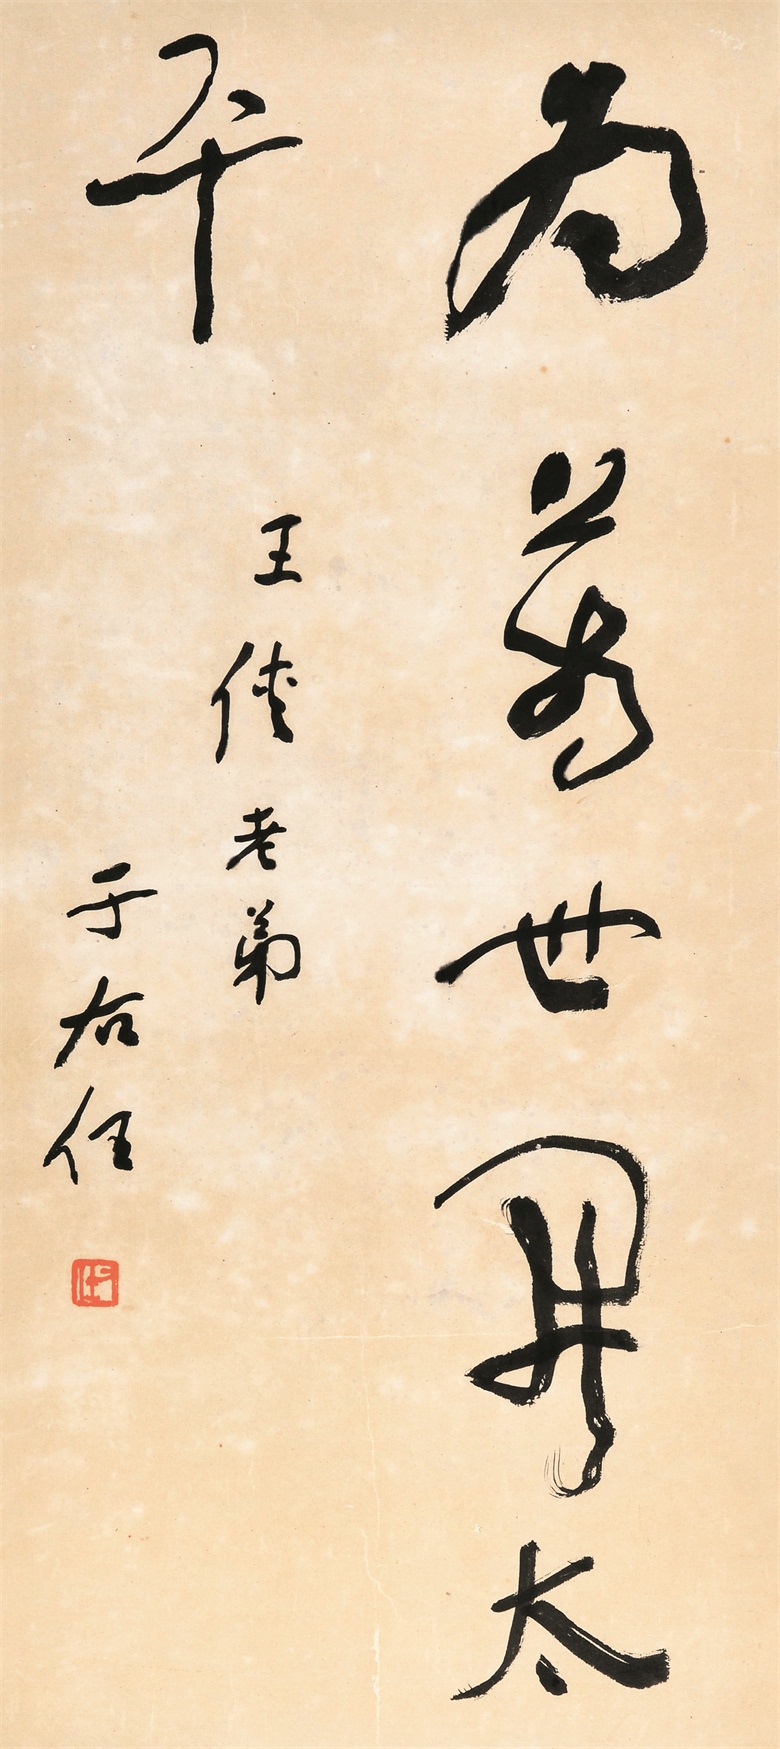 為萬世開太
平
王俠老弟
于右任